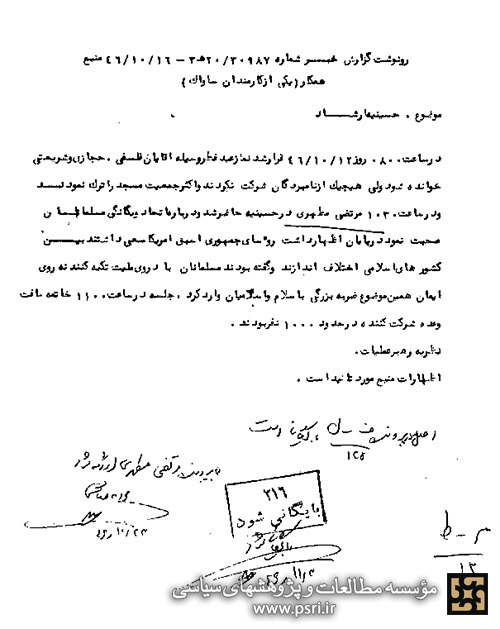 رونوشت گزارش خبر شماره ۲۰/۳۰۹۸۷ھ۳ – ۴۶/۱۰/۱۶ منبع
همکار (یکی از کارمندان ساواک)
موضوع . حسینیه ارشاد
در ساعت ۰۸۰۰ روز ۴۶/۱۰/۱۲ قرار شد نماز عید فطر وسیله اقایان فلسفی . حجازی وشریعتی
خوانده شود ولی هیچیک از نامبردگان شرکت نکردند واکثر جمعیت مسجد را ترک نمودند
ودر ساعت ۱۰۳۰ مرتضی مطهری در حسینیه حاضر شد ودرباره اتحاد ویگانگی مسلمانان
صحبت نمود درپایان اظهار داشت روسای جمهوری اسبق امریکا سعی داشتند بین
کشور های اسلامی اختلاف اندازند وگفته بودند مسلمانان باید روی ملیت تکیه کنند نه روی
ایمان همین موضوع ضربه بزرگی باسلام واسلامیان وارد کرد . جلسه در ساعت ۱۱۰۰ خاتمه یافت
وعده شرکت کننده در حدود ۱۰۰۰ نفر بودند .
نظریه رهبر عملیات.
اظهارات منبع مورد تائید است .
اصل در پرونده بایگانی است
۱۲۵
در پرونده مرتضی مطهری
۲۱۶
بایگانی شود
م – ط
۱۲
مؤسسه مطالعات و پژوهشهای سیاسی
www.psri.ir